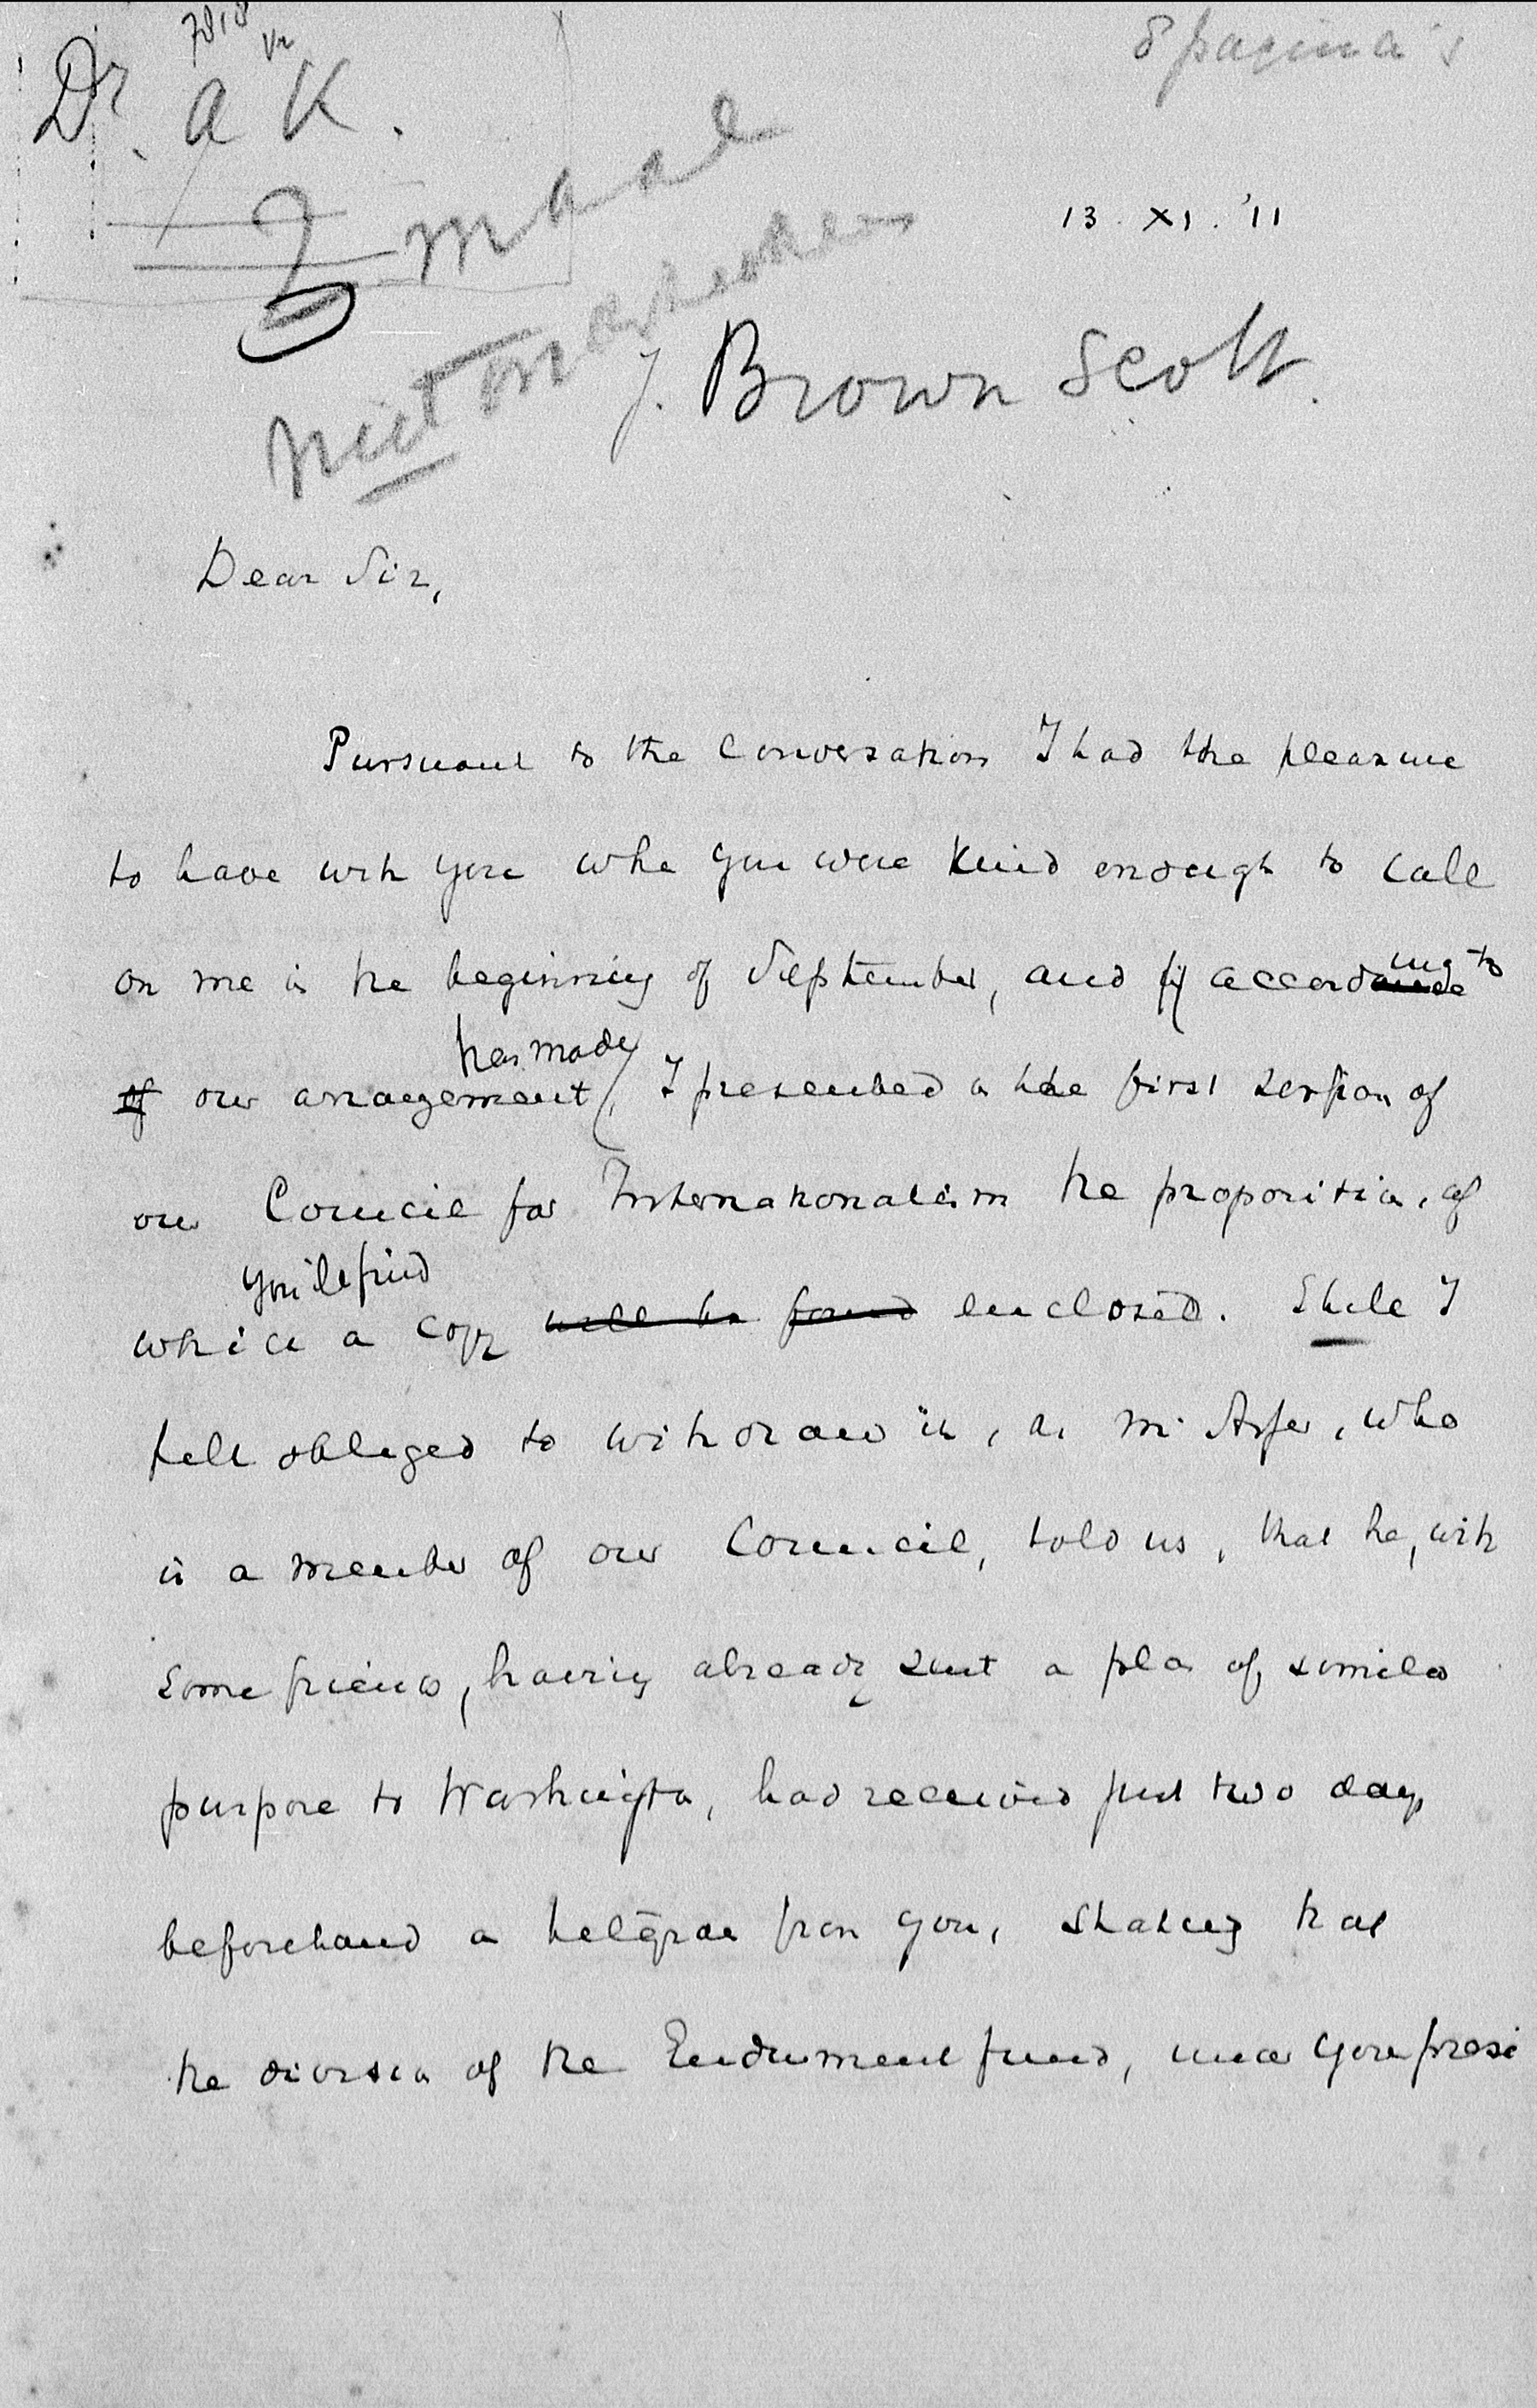 Dr. a K.
8 pagina's
2 maal
13. XI. '11
niet
J. Brown Scott.
Dear Sir,
Pursuant to the conversation I had the pleasure
to have with you whe you were kind enough to call
on me in the beginning of September, and if accordance ing to
of our arrangement, then made I presented in the first session of
our Council for Internationalism the proposition, of
which a copy will be found you'll find enclosed. Still I
felt obliged to withdraw it, as Mr Asser, who
is a member of our Council, told us, that he, with
some friends, having already sent a plan of similar
purpose to Washington, had received just two days
beforehand a telegram from you, stating that
the division of the Endowment fund, under your presi